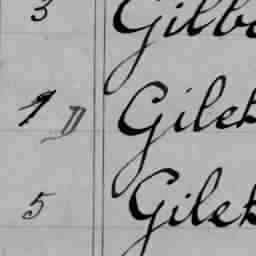 3 Gilb
1 D Gileb
5 Gileb